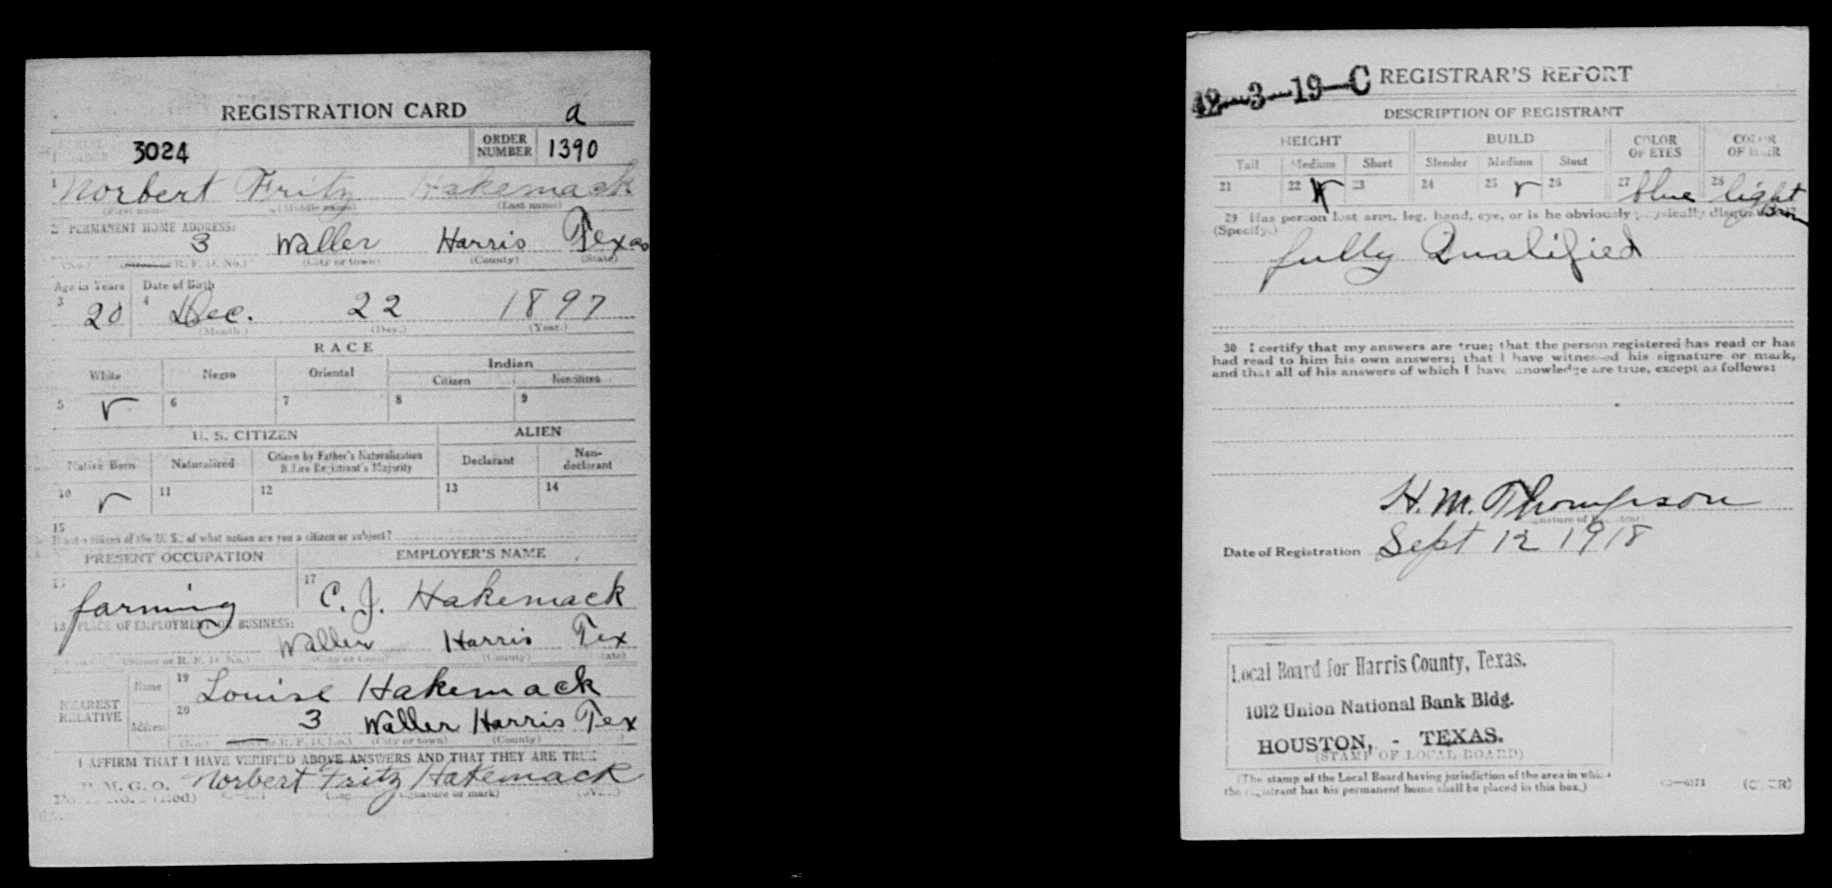 REGISTRATION CARD a
3024 ORDER NUMBER 1390
1 Norbert Fritz Hakemack
(First name) (Middle name) (Last name)
2 PERMANENT HOME ADDRESS:
3 Waller Harris Texas
(No.) R. F. D. No.) (City or town) (County) (State)
Age in Years Date of Birth
3 20 4 Dec. 22 1897
(Month.) (Day.) (Year.)
RACE
White Negro Oriental Indian
Citizen Noncitizen
5 6 7 8 9
U. S. CITIZEN ALIEN
Native Born Naturalized Citizen by Father's Naturalization Before Registrant's Majority Declarant Non-declarant
10 11 12 13 14
15
If not a citizen of the U. S., of what nation are you a citizen or subject?
PRESENT OCCUPATION EMPLOYER'S NAME
16 farming 17 C. J. Hakemack
18 PLACE OF EMPLOYMENT OR BUSINESS:
Waller Harris Tex
(Street or R. F. D. No.) (City or town) (County) (State)
NEAREST RELATIVE Name 19 Louise Hakemack
Address 20 3 Waller Harris Tex
(No.) R. F. D. No.) (City or town) (County)
I AFFIRM THAT I HAVE VERIFIED ABOVE ANSWERS AND THAT THEY ARE TRUE
P. M. G. O. Norbert Fritz Hakemack
(Red) (Signature or mark)
42-3-19-C REGISTRAR'S REPORT
DESCRIPTION OF REGISTRANT
HEIGHT BUILD COLOR OF EYES COLOR OF HAIR
Tall Medium Short Slender Medium Stout
21 22 23 24 25 26 27 blue 28 light Brn
29 Has person lost arm, leg, hand, eye, or is he obviously physically disqualified?
(Specify.)
fully Qualified
30 I certify that my answers are true; that the person registered has read or has
had read to him his own answers; that I have witnessed his signature or mark,
and that all of his answers of which I have knowledge are true, except as follows:
H. M. Thompson
(Signature of Registrar)
Date of Registration Sept 12 1918
Local Board for Harris County, Texas.
1012 Union National Bank Bldg.
HOUSTON, - TEXAS.
(STAMP OF LOCAL BOARD)
(The stamp of the Local Board having jurisdiction of the area in which
the registrant has his permanent home shall be placed in this box.)
(OVER)